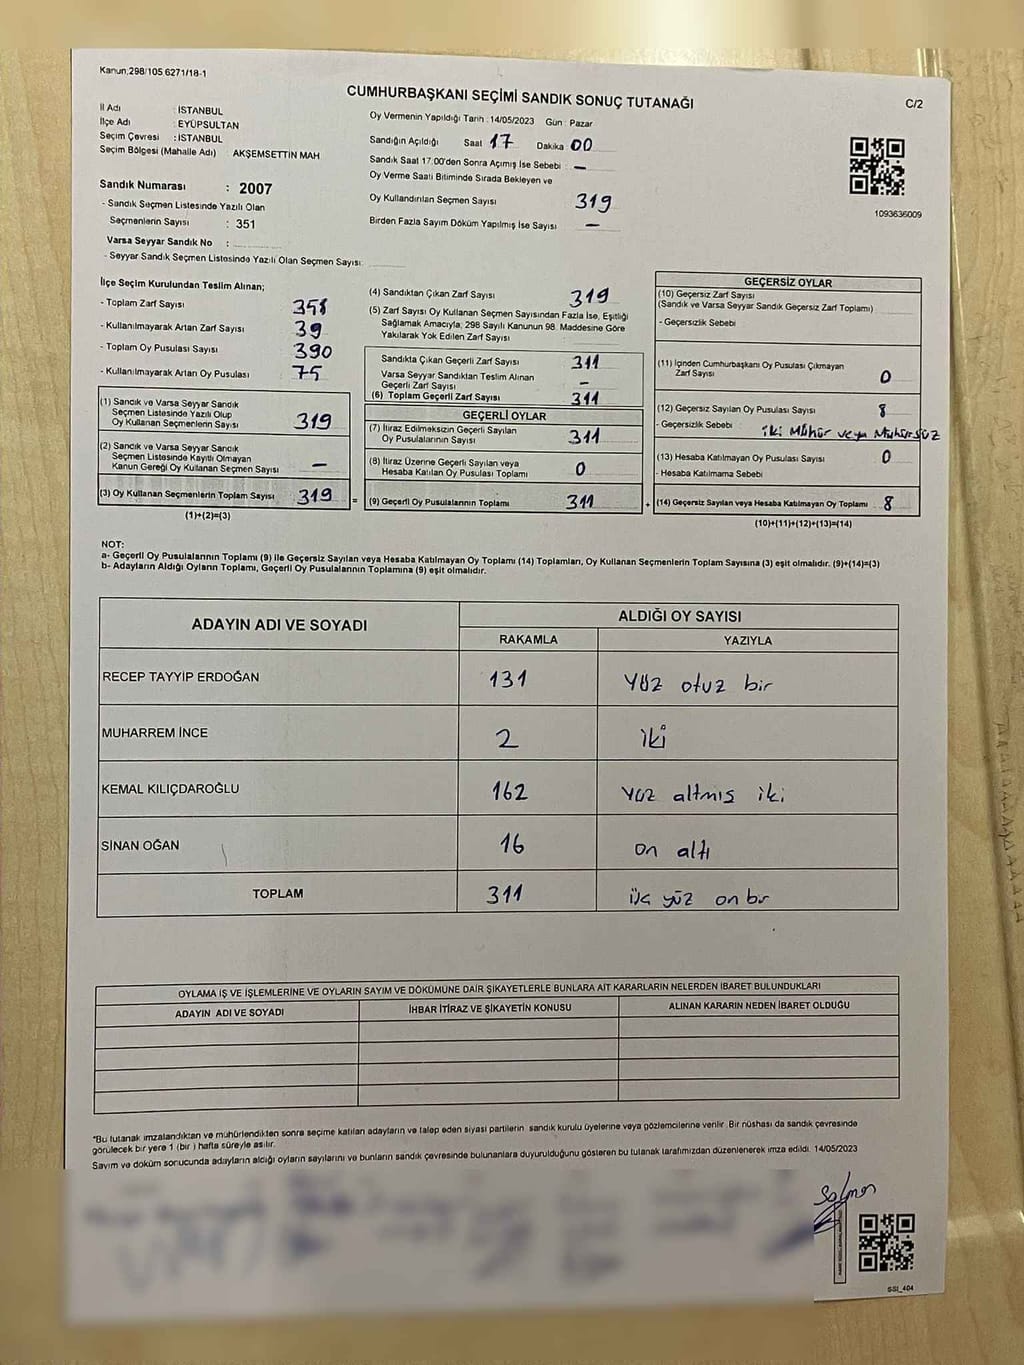 Kanun,298/105 6271/18-1
CUMHURBAŞKANI SEÇİMİ SANDIK SONUÇ TUTANAĞI
C/2
İl Adı : İSTANBUL
İlçe Adı : EYÜPSULTAN
Seçim Çevresi : İSTANBUL
Seçim Bölgesi (Mahalle Adı) AKŞEMSETTİN MAH
Sandık Numarası : 2007
- Sandık Seçmen Listesinde Yazılı Olan
Seçmenlerin Sayısı : 351
Varsa Seyyar Sandık No :
- Seyyar Sandık Seçmen Listesinde Yazılı Olan Seçmen Sayısı:
Oy Vermenin Yapıldığı Tarih : 14/05/2023 Gün : Pazar
Sandığın Açıldığı Saat 17 Dakika 00
Sandık Saat 17:00'den Sonra Açımış İse Sebebi : —
Oy Verme Saati Bitiminde Sırada Bekleyen ve
Oy Kullandırılan Seçmen Sayısı 319
Birden Fazla Sayım Döküm Yapılmış İse Sayısı —
1093636009
İlçe Seçim Kurulundan Teslim Alınan;
- Toplam Zarf Sayısı 358
- Kullanılmayarak Artan Zarf Sayısı 39
- Toplam Oy Pusulası Sayısı 390
- Kullanılmayarak Artan Oy Pusulası 75
(1) Sandık ve Varsa Seyyar Sandık
Seçmen Listesinde Yazılı Olup
Oy Kullanan Seçmenlerin Sayısı 319
(2) Sandık ve Varsa Seyyar Sandık
Seçmen Listesinde Kayıtlı Olmayan
Kanun Gereği Oy Kullanan Seçmen Sayısı —
(3) Oy Kullanan Seçmenlerin Toplam Sayısı 319
(1)+(2)=(3)
(4) Sandıktan Çıkan Zarf Sayısı 319
(5) Zarf Sayısı Oy Kullanan Seçmen Sayısından Fazla İse, Eşitliği
Sağlamak Amacıyla, 298 Sayılı Kanunun 98. Maddesine Göre
Yakılarak Yok Edilen Zarf Sayısı
Sandıkta Çıkan Geçerli Zarf Sayısı 311
Varsa Seyyar Sandıktan Teslim Alınan
Geçerli Zarf Sayısı —
(6) Toplam Geçerli Zarf Sayısı 311
GEÇERLİ OYLAR
(7) İtiraz Edilmeksizin Geçerli Sayılan
Oy Pusulalarının Sayısı 311
(8) İtiraz Üzerine Geçerli Sayılan veya
Hesaba Katılan Oy Pusulaları Toplamı 0
= (9) Geçerli Oy Pusulalarının Toplamı 311
GEÇERSİZ OYLAR
(10) Geçersiz Zarf Sayısı
(Sandık ve Varsa Seyyar Sandık Geçersiz Zarf Toplamı)
- Geçersizlik Sebebi
(11) İçinden Cumhurbaşkanı Oy Pusulası Çıkmayan
Zarf Sayısı 0
(12) Geçersiz Sayılan Oy Pusulası Sayısı 8
- Geçersizlik Sebebi iki Mühür veya Mühürsüz
(13) Hesaba Katılmayan Oy Pusulası Sayısı 0
- Hesaba Katılmama Sebebi
+ (14) Geçersiz Sayılan veya Hesaba Katılmayan Oy Toplamı 8
(10)+(11)+(12)+(13)=(14)
NOT:
a- Geçerli Oy Pusulalarının Toplamı (9) ile Geçersiz Sayılan veya Hesaba Katılmayan Oy Toplamı (14) Toplamları, Oy Kullanan Seçmenlerin Toplam Sayısına (3) eşit olmalıdır. (9)+(14)=(3)
b- Adayların Aldığı Oyların Toplamı, Geçerli Oy Pusulalarının Toplamına (9) eşit olmalıdır.
ADAYIN ADI VE SOYADI
ALDIĞI OY SAYISI
RAKAMLA YAZIYLA
RECEP TAYYİP ERDOĞAN 131 Yüz otuz bir
MUHARREM İNCE 2 iki
KEMAL KILIÇDAROĞLU 162 Yüz altmış iki
SİNAN OĞAN 16 on altı
TOPLAM 311 üç yüz on bir
OYLAMA İŞ VE İŞLEMLERİNE VE OYLARIN SAYIM VE DÖKÜMÜNE DAİR ŞİKAYETLERLE BUNLARA AİT KARARLARIN NELERDEN İBARET BULUNDUKLARI
ADAYIN ADI VE SOYADI
İHBAR İTİRAZ VE ŞİKAYETİN KONUSU
ALINAN KARARIN NEDEN İBARET OLDUĞU
*Bu tutanak imzalandıktan ve mühürlendikten sonra seçime katılan adayların ve talep eden siyasi partilerin sandık kurulu üyelerine veya gözlemcilerine verilir. Bir nüshası da sandık çevresinde
görülecek bir yere 1 (bir) hafta süreyle asılır.
Sayım ve döküm sonucunda adayların aldığı oyların sayılarını ve bunların sandık çevresinde bulunanlara duyurulduğunu gösteren bu tutanak tarafımızdan düzenlenerek imza edildi. 14/05/2023
SSI_404